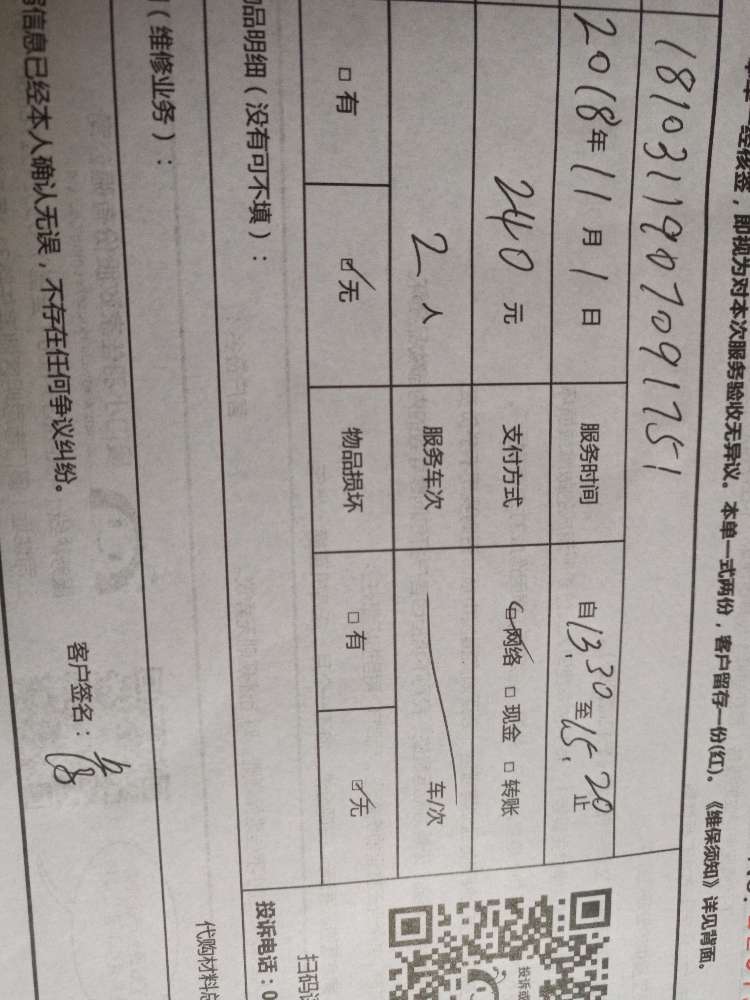 经核签，即视为对本次服务验收无异议。本单一式两份，客户留存一份(红)。《维保须知》详见背面。
1810311907091751
2018年11月1日 服务时间 自13:30至15:20止
240元 支付方式 ☑网络 □现金 □转账
2人 服务车次 车/次
□有 ☑无 物品损坏 □有 ☑无
品明细（没有可不填）：
（维修业务）：
信息已经本人确认无误，不存在任何争议纠纷。 客户签名：
扫码
投诉电话：0
代购材料
投诉